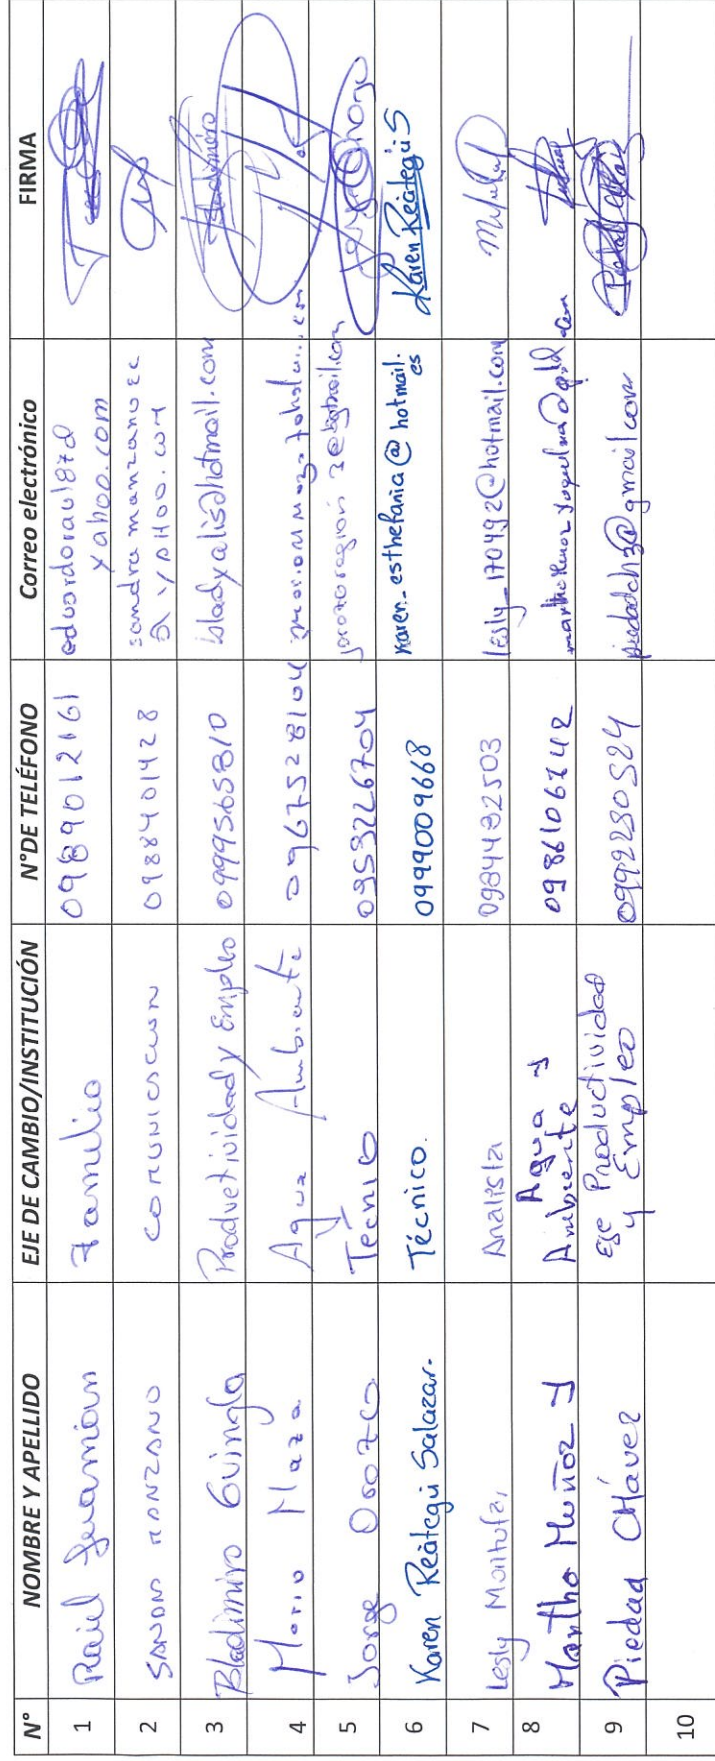 N° NOMBRE Y APELLIDO EJE DE CAMBIO/INSTITUCIÓN N°DE TELÉFONO Correo electrónico FIRMA
1 Raúl Familia 0989012161 eduardoraul87@
yahoo.com
2 SANDRA MANZANO COMUNICACION 0988401428 sandramanzanoec
@ YAHOO.COM
3 Bladimiro Guingla Productividad y Empleo 0999565810 bladyalis@hotmail.com Bladimiro
4 Mario Maza Agua Ambiente 0967528104
5 Jorge Orozco Técnico
6 Karen Reátegui Salazar. Técnico. 0999009668 karen_esthefania@hotmail.
es Karen Reátegui S
7 Lesly Montufar Analista 0984492503 lesly_170492@hotmail.com
8 Martha Muñoz Agua y
Ambiente 0986106142
9 Piedad CHávez Eje Productividad
y Empleo 0992230524 piedadch3@gmail.com
10